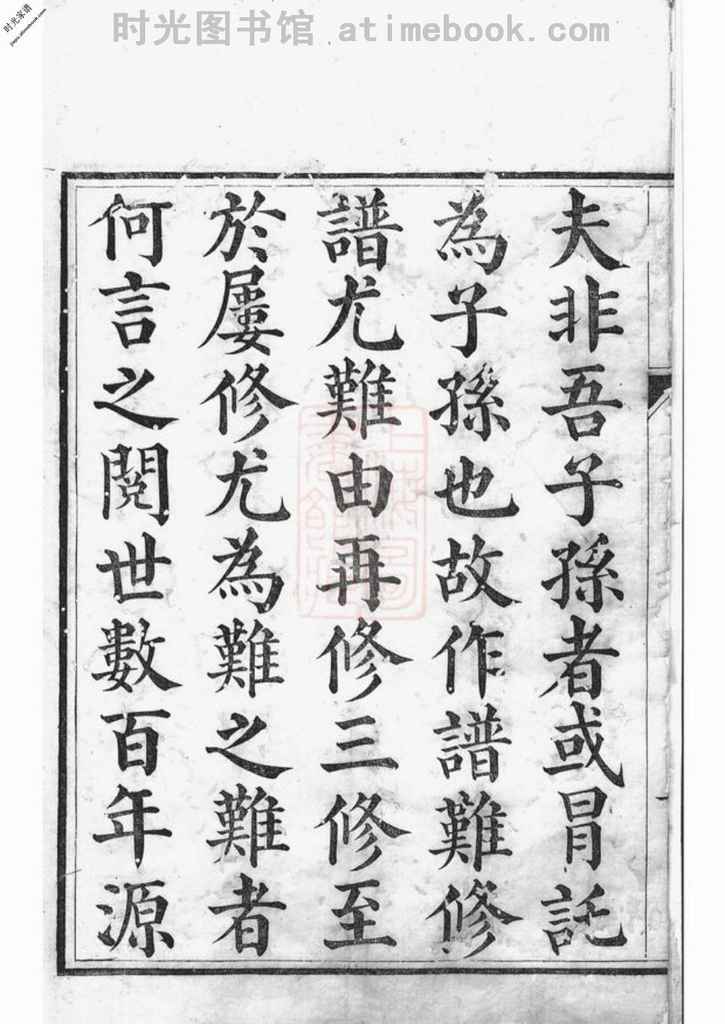 时光图书馆 atimebook.com
时光家谱
夫非吾子孫者或冐託
為子孫也故作譜難修
譜尤難由再修三修至
於屢修尤為難之難者
何言之閱世數百年源